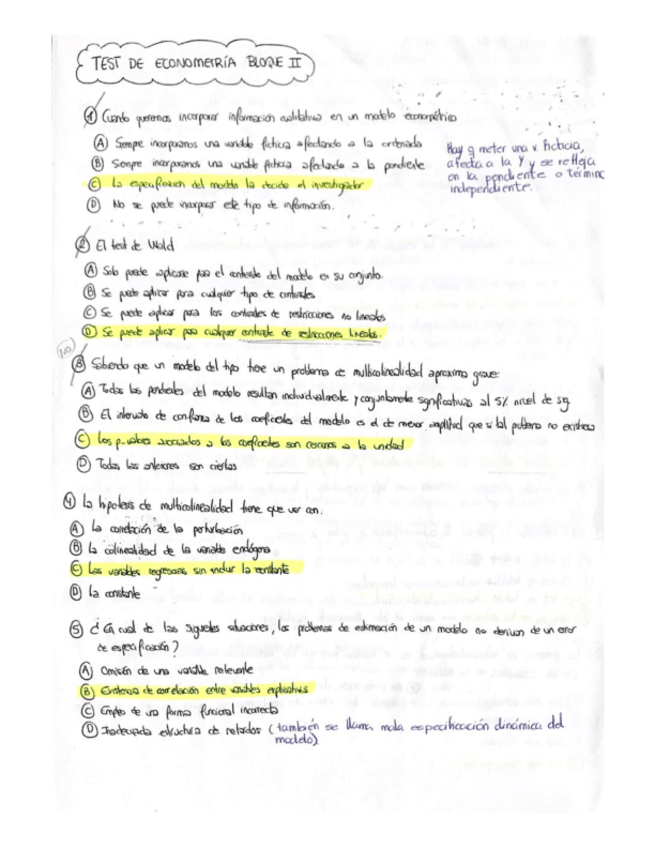 TEST DE ECONOMETRÍA BLOQUE II
1 Cuando queremos incorporar información cualitativa en un modelo econométrico
A Siempre incorporamos una variable ficticia afectando a la ordenada
B Siempre incorporamos una variable ficticia afectando a la pendiente
C La especificación del modelo la decide el investigador
D No se puede incorporar este tipo de información.
Hay q meter una v ficticia,
afecta a la Y y se refleja
en la pendiente o término
independiente.
2 El test de Wald
A Solo puede aplicarse para el contraste del modelo en su conjunto.
B Se puede aplicar para cualquier tipo de contrastes
C Se puede aplicar para los contrastes de restricciones no lineales
D Se puede aplicar para cualquier contraste de restricciones lineales.
NO
3 Sabiendo que un modelo del tipo tiene un problema de multicolinealidad aproximada grave:
A Todas las pendientes del modelo resultan individualmente y conjuntamente significativas al 5% nivel de sig
B El intervalo de confianza de los coeficientes del modelo es el de menor amplitud que si tal problema no existiese
C Los p-valores asociados a los coeficientes son cercanos a la unidad
D Todas las anteriores son ciertas
4 La hipótesis de multicolinealidad tiene que ver con:
A La correlación de la perturbación
B La colinealidad de la variable endógena
C Las variables regresoras sin incluir la constante
D La constante
5 ¿En cual de las siguientes situaciones, los problemas de estimación de un modelo no derivan de un error
de especificación?
A Omisión de una variable relevante
B Existencia de correlación entre variables explicativas
C Empleo de una forma funcional incorrecta
D Inadecuada estructura de retardos (también se llama mala especificación dinámica del
modelo)